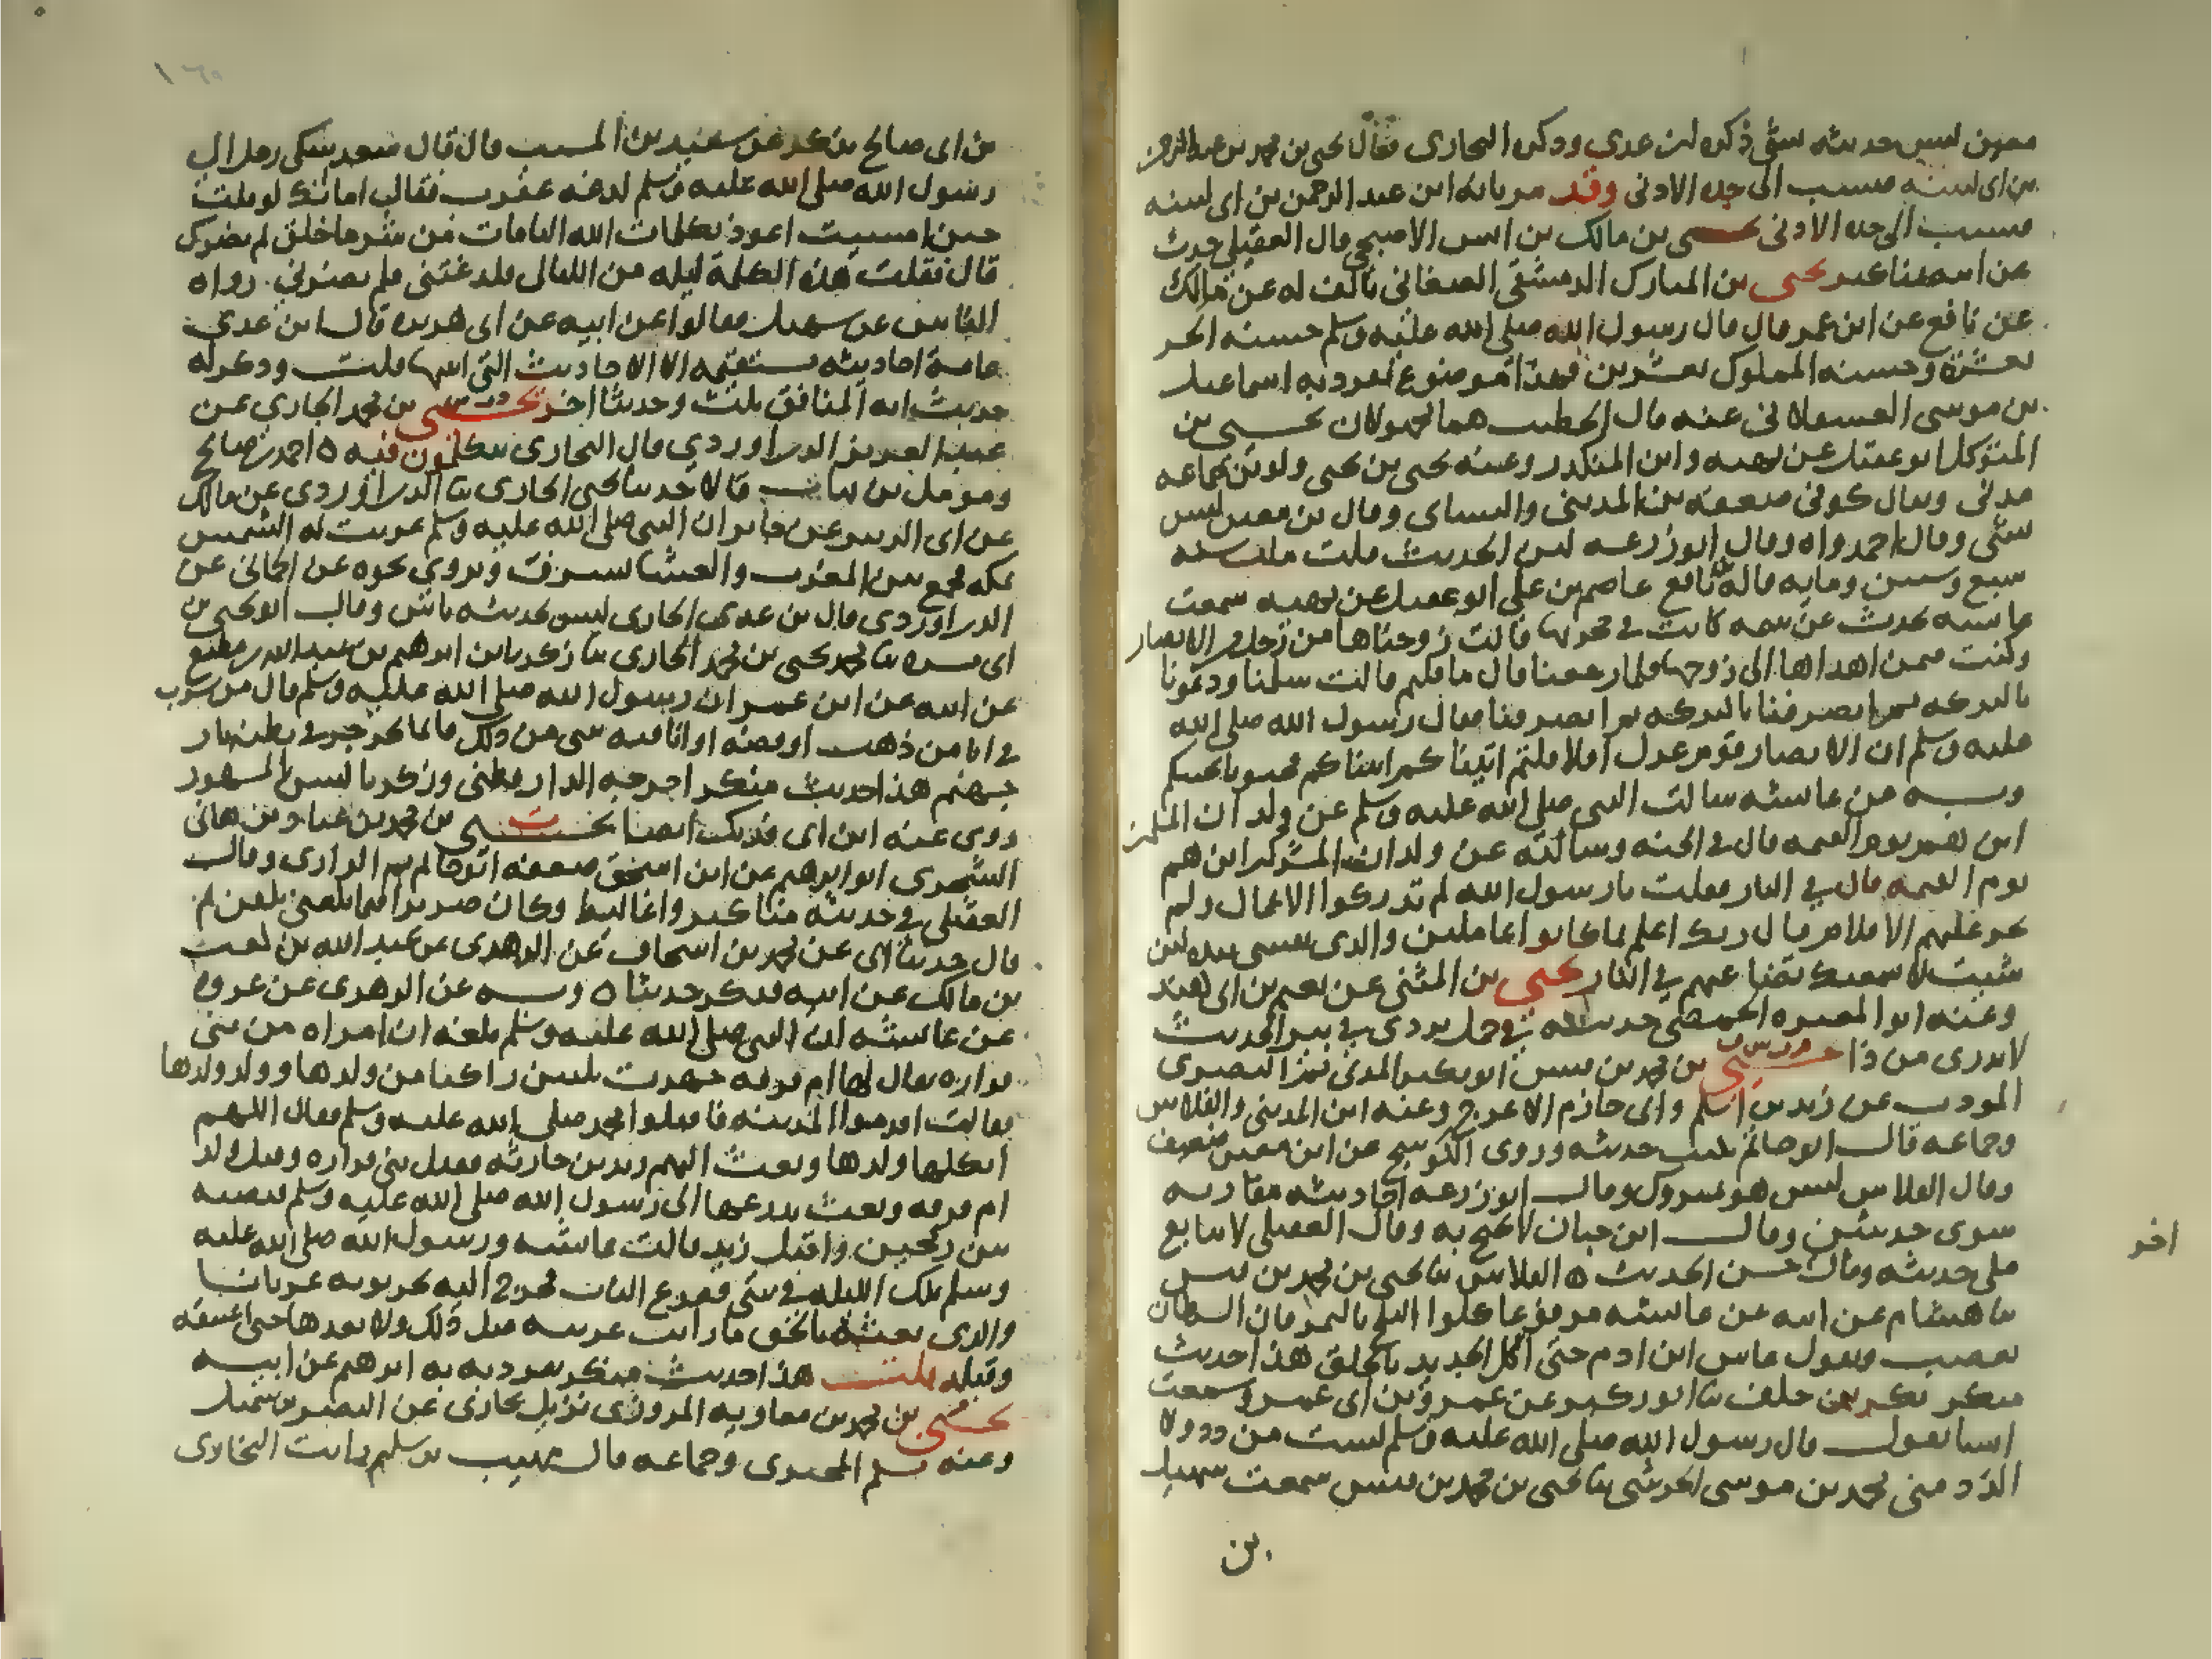 معين ليس حديثه بشي ذكره ابن عدي وذكره البخاري فقال يحيى بن محمد بن عبد الرحمن
بن ابي لبيبه فنسب الى جده الادنى وقد مر بانه ابن عبد الرحمن بن ابي لبيبه
فنسب الى جده الادنى يحيى بن مالك بن انس الاصبحي قال العقيلي حدث
عن ابيه بمناكير يحيى بن المبارك الدمشقي الصنعاني تالف له عن مالك
عن نافع عن ابن عمر قال قال رسول الله صلى الله عليه وسلم حسنة الحر
بعشرة وحسنة المملوك بعشرين فهذا موضوع تفرد به اسماعيل
بن موسى العسقلاني عنه قال الخطيب هما مجهولان يحيى بن
المتوكل ابو عقيل عن بهيه وابن المنكدر وعنه يحيى بن يحيى ولوين وجماعه
مدني وقال كوفي ضعفه بن المديني والنساي وقال بن معين ليس
بشي وقال احمد واه وقال ابو زرعه لين الحديث قلت مات سنه
سبع وستين ومايه قاله بن قانع عاصم بن علي ابو عقيل عن بهيه سمعت
عايشه تحدث عن يتيمه كانت في حجرها قالت زوجناها من رجل من الانصار
وكنت فيمن اهداها الى زوجها فلما رجعنا قال ما قلتم قالت سلمنا ودعونا
بالبركه ثم انصرفنا فقال رسول الله صلى الله
عليه وسلم ان الانصار قوم غزل افلا قلتم اتيناكم اتيناكم فحيونا نحييكم
وبه عن عايشه سالت النبي صلى الله عليه وسلم عن ولدان المسلمين
اين هم يوم القيمه قال في الجنه وسالته عن ولدان المشركين اين هم
يوم القيمه قال في النار فقلت يا رسول الله لم يدركوا الاعمال ولم
تجر عليهم الاقلام قال ربك اعلم بما كانوا عاملين والذي نفسي بيده لئن
شيت لاسمعتك تضاغيهم في النار يحيى بن المثنى عن نعيم بن ابي هند
وعنه ابو المغيره الحمصي حديثه في جمل تردى في بير الحديث
لا يدرى من ذا يحيى بن محمد بن قيس ابو زكير المدني ثم البصري
المودب عن زيد بن اسلم وابي حازم الاعرج وعنه ابن المديني والفلاس
وجماعه قال ابو حاتم يكتب حديثه وروى الكوسج عن ابن معين ضعيف
وقال الفلاس ليس هو بمتروك وقال ابو زرعه احاديثه متقاربه
سوى حديثين وقال ابن حبان لا يحتج به وقال العقيلي لا يتابع
على حديثه وقال حسن الحديث ه الفلاس ثنا يحيى بن محمد بن قيس
ثنا هشام عن ابيه عن عايشه مرفوعا كلوا البلح بالتمر فان الشيطان
يغضب ويقول عاش ابن ادم حتى اكل الجديد بالخلق هذا حديث
منكر بكر بن خلف ثنا ابو زكير عن عمرو بن ابي عمرو سمعت
انسا يقول قال رسول الله صلى الله عليه وسلم لست من دد ولا
الدد مني محمد بن موسى الحرشي ثنا يحيى بن محمد بن قيس سمعت سهيل
بن
اخر
بن ابي صالح عن سعيد بن المسيب قال قال سعد شكى رجل الى
رسول الله صلى الله عليه وسلم لدغة عقرب فقال اما انك لو قلت
حين امسيت اعوذ بكلمات الله التامات من شر ما خلق لم يضرك
قال فقلت هذه الكلمة ليلة من الليالي فلدغتني فلم يضرني رواه
الناس عن سهيل فقالوا عن ابيه عن ابي هريره قال ابن عدي
عامة احاديثه مستقيمه الا الاحاديث التي بينتها قلت وذكر له
حديث اية المنافق ثلث وحديثا اخر يحيى بن محمد الجاري عن
عبد العزيز الدراوردي قال البخاري يتكلمون فيه ه احمد بن صالح
ومومل بن قالا حدثنا يحيى الجاري ثنا الدراوردي عن مالك
عن ابي الزبير عن جابر ان النبي صلى الله عليه وسلم غربت له الشمس
بمكه فجمع بين المغرب والعشا بسرف ويروى نحوه عن الحماني عن
الدراوردي قال بن عدي الجاري ليس بحديثه باس وقال ابو يحيى بن
ابي مسره ثنا يحيى بن محمد الجاري ثنا زكريا بن ابرهيم بن عبد الله بن مطيع
عن ابيه عن ابن عمر ان رسول الله صلى الله عليه وسلم قال من شرب
في انا من ذهب او فضه او انا فيه شي من ذلك فانما يجرجر في بطنه نار
جهنم هذا حديث منكر اخرجه الدارقطني وزكريا ليس المشهور
روى عنه ابن ابي فديك ايضا يحيى بن محمد بن عباد بن هاني
الشجري ابو ابرهيم عن ابن اسحق ضعفه ابو حاتم الرازي وقال
العقيلي في حديثه مناكير واغاليط وكان ضريرا فيما بلغني يلقن
قال حدثنا ابي عن محمد بن اسحاق عن الزهري عن عبد الله بن كعب
بن مالك عن ابيه فذكر حديثا ه وبه عن الزهري عن عروه
عن عايشه ان النبي صلى الله عليه وسلم بلغه ان امراه من بني
فزاره يقال لها ام قرفه جهزت ثلثين راكبا من ولدها وولد ولدها
فقالت اقدموا المدينه فاقتلوا محمد صلى الله عليه وسلم فقال اللهم
اثكلها ولدها وبعث اليهم زيد بن حارثه فقتل بني فزاره وقتل ولد
ام قرفه وبعث بدرعها الى رسول الله صلى الله عليه وسلم فنصبه
بين رمحين واقبل زيد قالت عايشه ورسول الله صلى الله عليه
وسلم تلك الليله في بيتي فقرع الباب فخرج اليه يجر ثوبه عريانا
والذي بعثه بالحق ما رايت عريته قبل ذلك ولا بعدها حتى اعتنقه
وقبله قلت هذا حديث منكر تفرد به ابرهيم عن ابيه
يحيى بن محمد بن معاويه المروزي نزيل بخارى عن النضر بن شميل
وعنه وجماعه قال